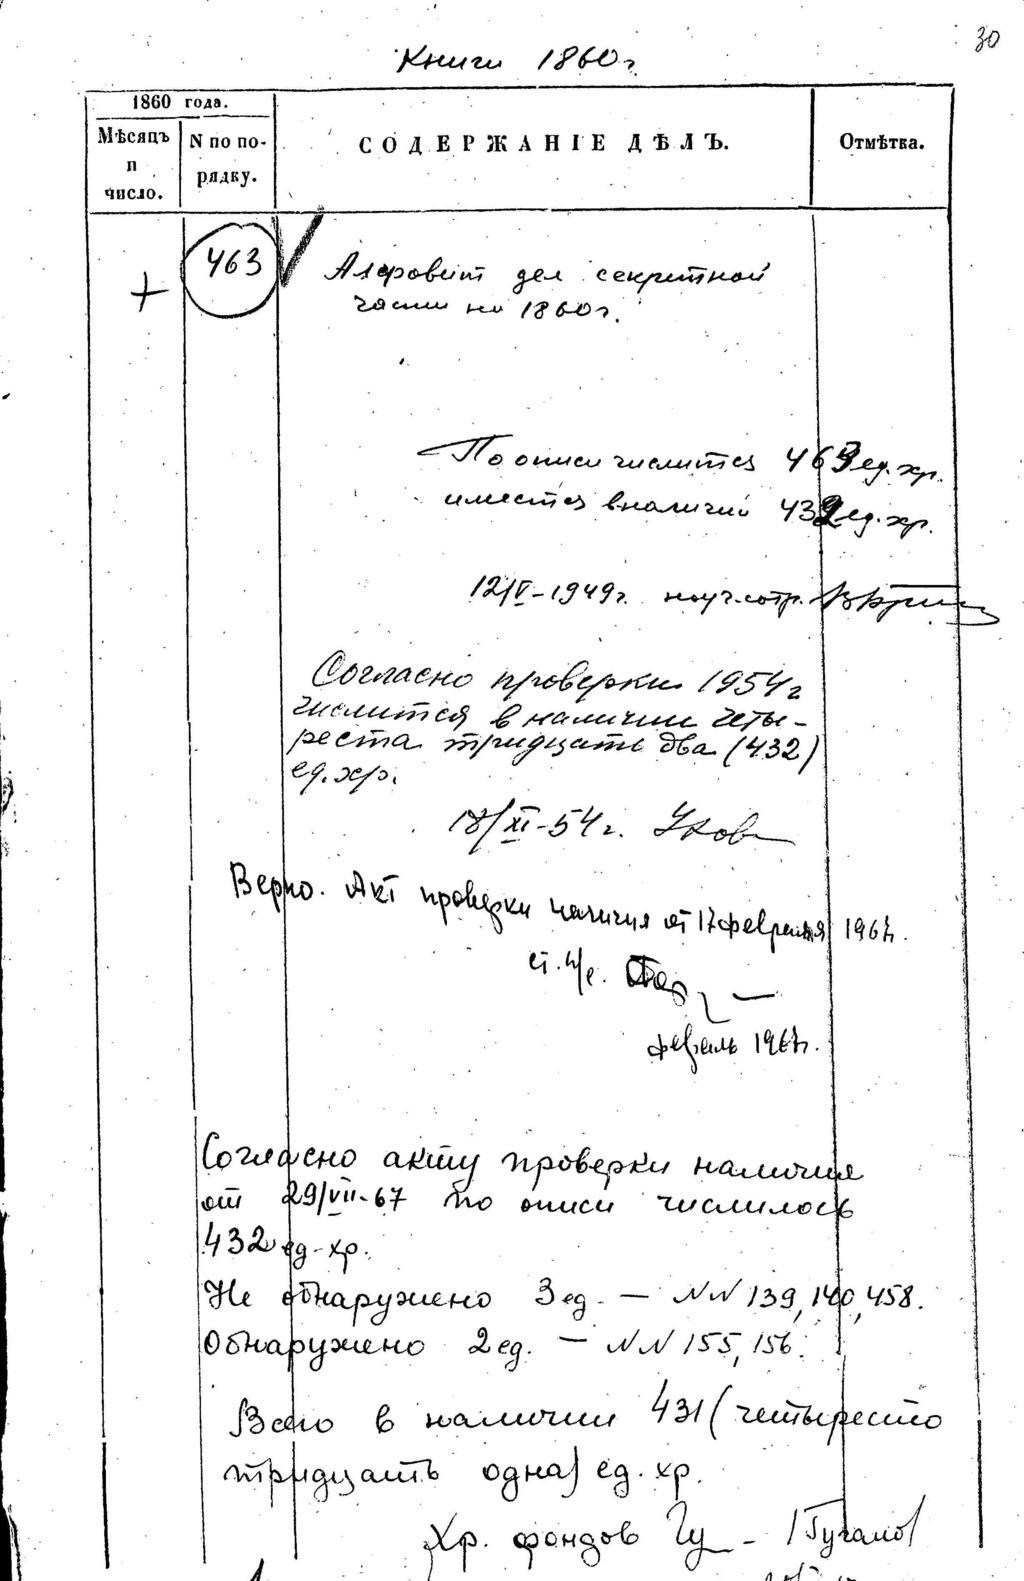 30
Книги 1860г
1860 года.
Мѣсяцъ и число.
N по порядку.
СОДЕРЖАНІЕ ДѢЛЪ.
Отмѣтка.
+ 463 V Алфовит дел секретной
части на 1860г.
По описи числится 463 ед. хр.
имеется в наличии 432 ед. хр.
12/V-1949г. науч. сотр.
Согласно проверки 1954г
числится в наличии четы-
реста тридцать два (432)
ед. хр.
18/XI-54г.
Верно. Акт проверки наличия от 17 февраля 1967г.
ст. н/с.
февраль 1967г.
Согласно акту проверки наличия
от 29/VII-67 по описи числилось
432 ед. хр.
Не обнаружено 3 ед. — NN 139, 140, 458.
Обнаружено 2 ед. — NN 155, 156.
Всего в наличии 431 (четыресто
тридцать одна) ед. хр.
Хр. фондов